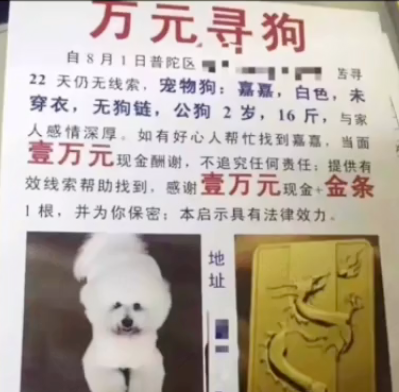 万元寻狗
自8月1日普陀区 苦寻
22 天仍无线索，宠物狗：嘉嘉，白色，未
穿衣，无狗链，公狗 2 岁，16 斤，与家
人感情深厚。如有好心人帮忙找到嘉嘉，当面
壹万元现金酬谢，不追究任何责任；提供有
效线索帮助找到，感谢壹万元现金+金条
1 根，并为你保密；本启示具有法律效力。
地址